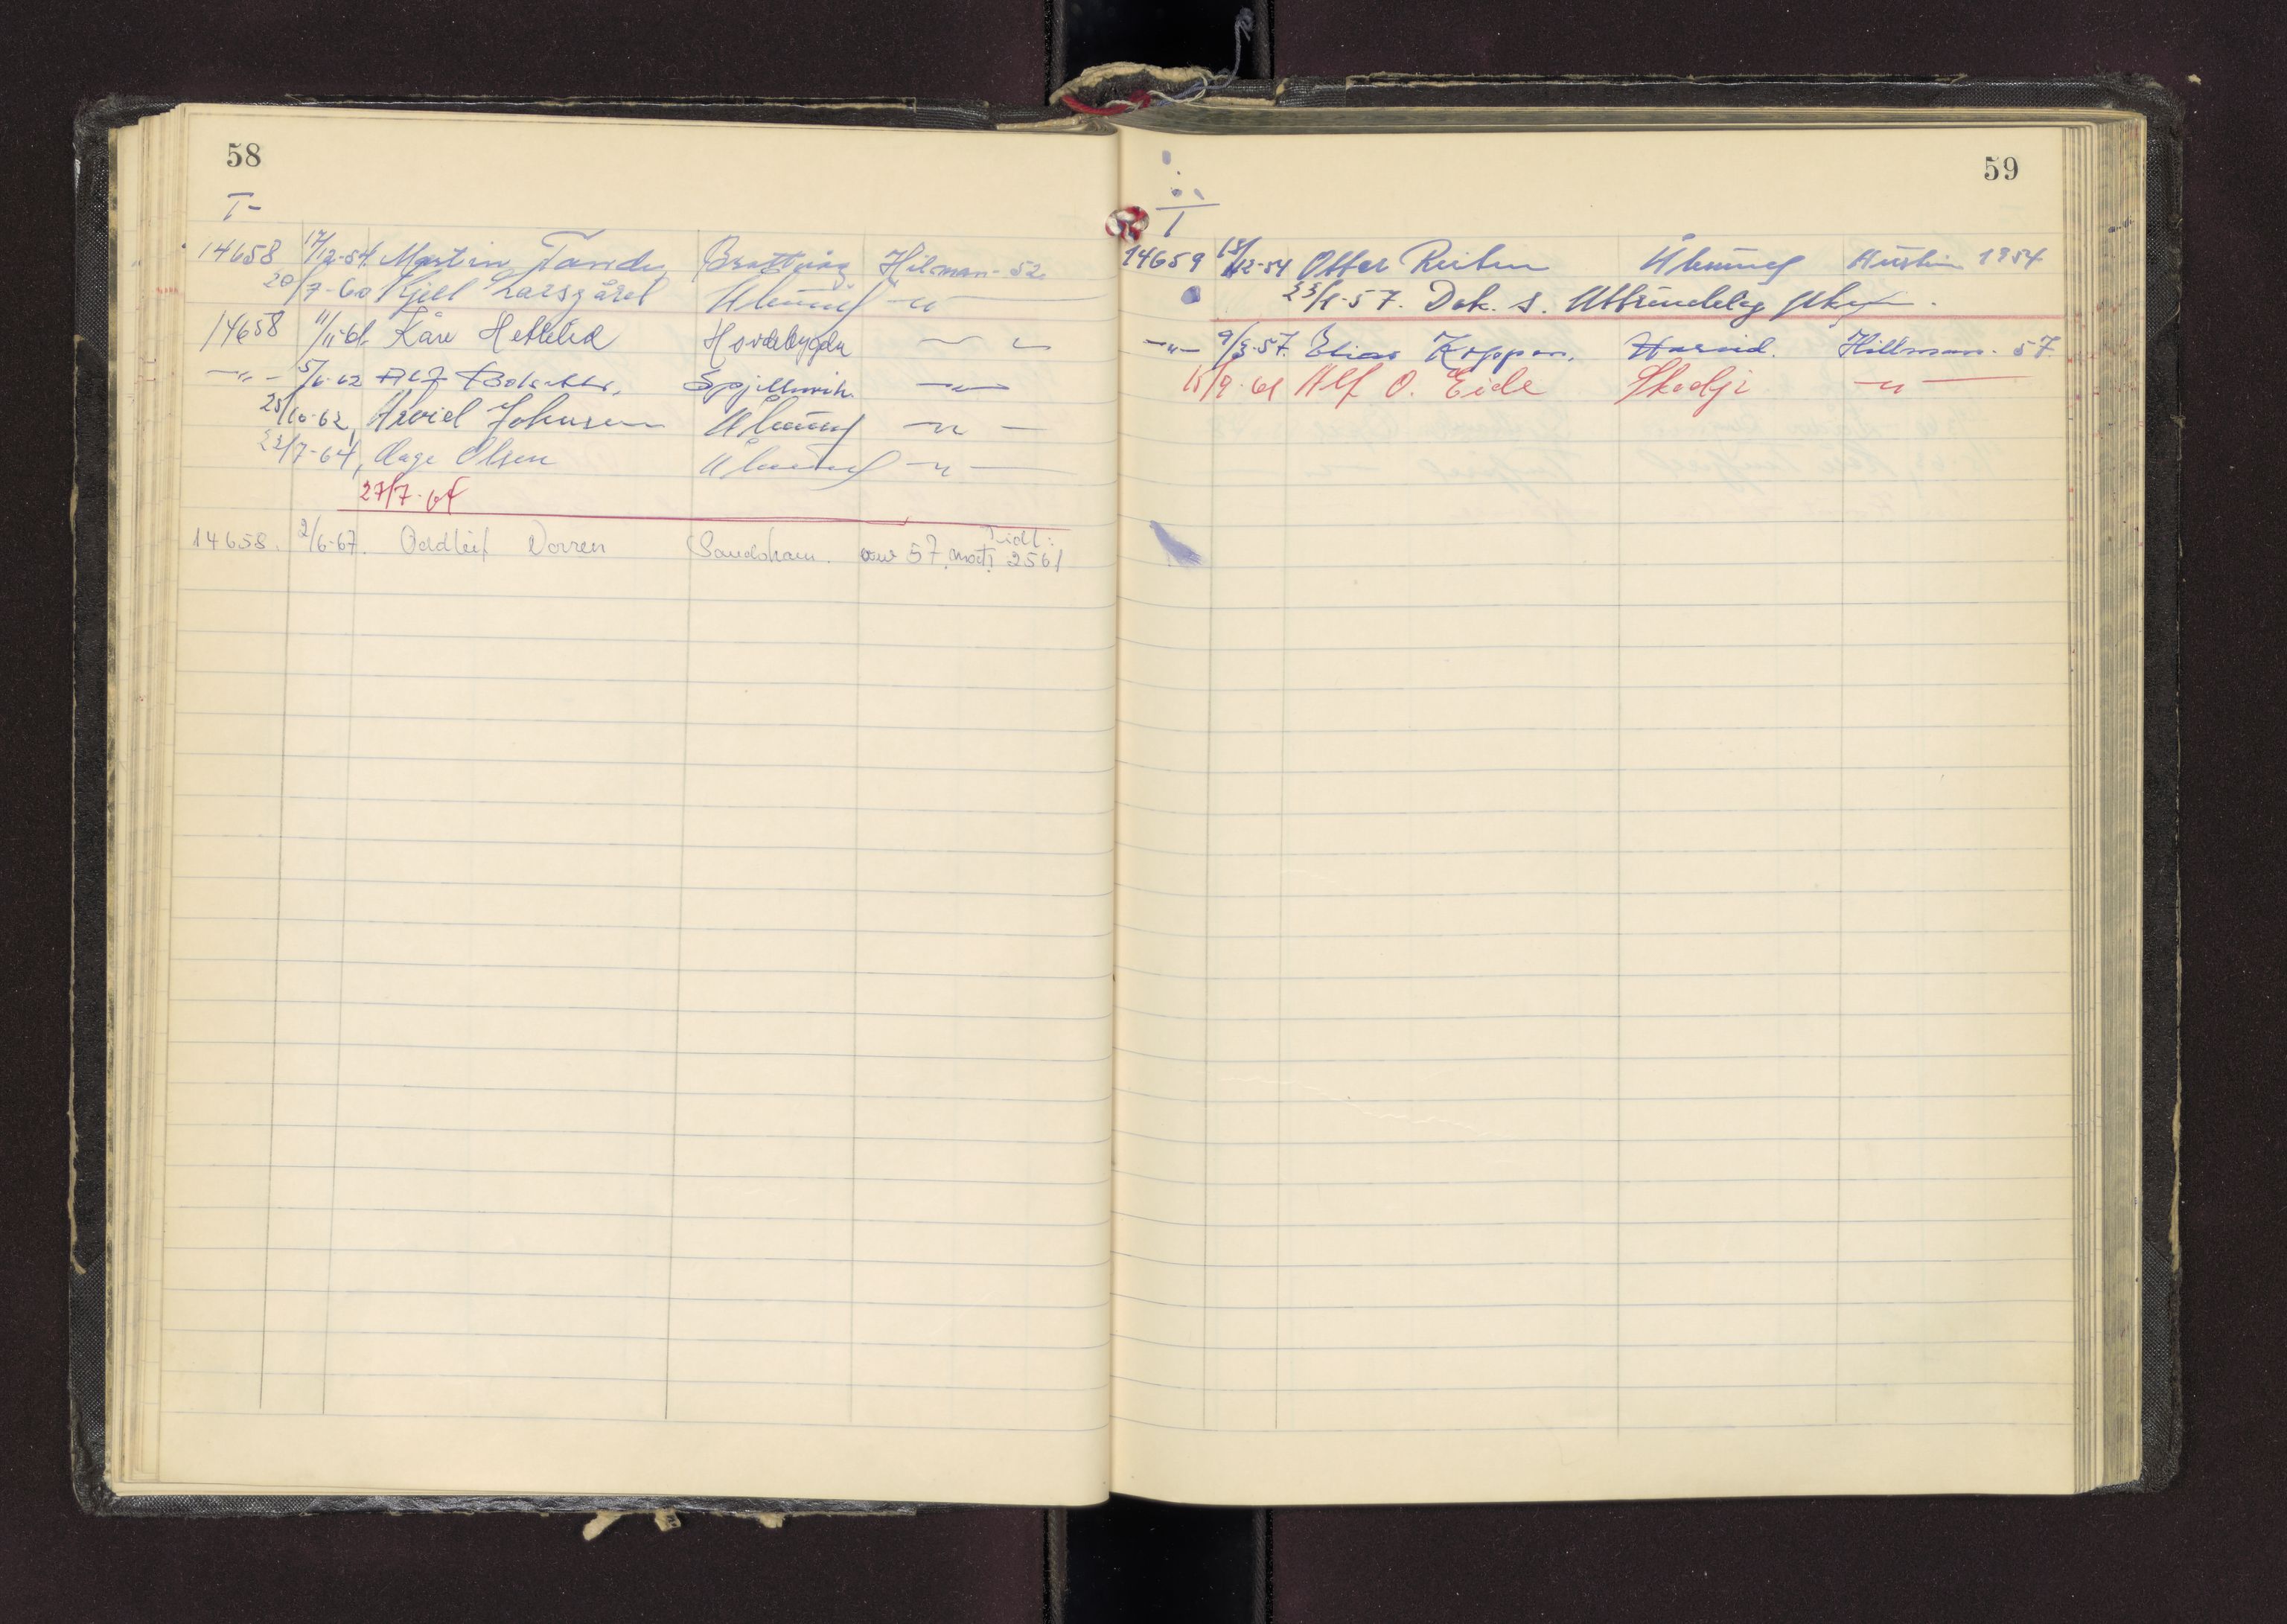 58
T-
14658 17/12-54. Martin Tande, Brattvåg Hilman - 52
20/7-60 Kjell Larsgård Ålesund -"-
14658 11/11-61 Kåre Hetleled Hovdebygda - " -
-"- 5/6-62 Alf Spjellkavik -"-
25/10-62, Arvid Johnsen Ålesund -"-
23/7-64, Aage Olsen Ålesund -"-
27/7-64
14658. 2/6-67. Oddleif Vorren Sandshavn. 57 mod. 2561
59
T
14659 18/12-54 Otter Reiten Ålesund Austin 1954
23/1-57. Dok. s.
-"- 9/3-57. Elias Koppen. Hareid. Hillman - 57
15/9-61 Alf O. Eide Skodje -"-